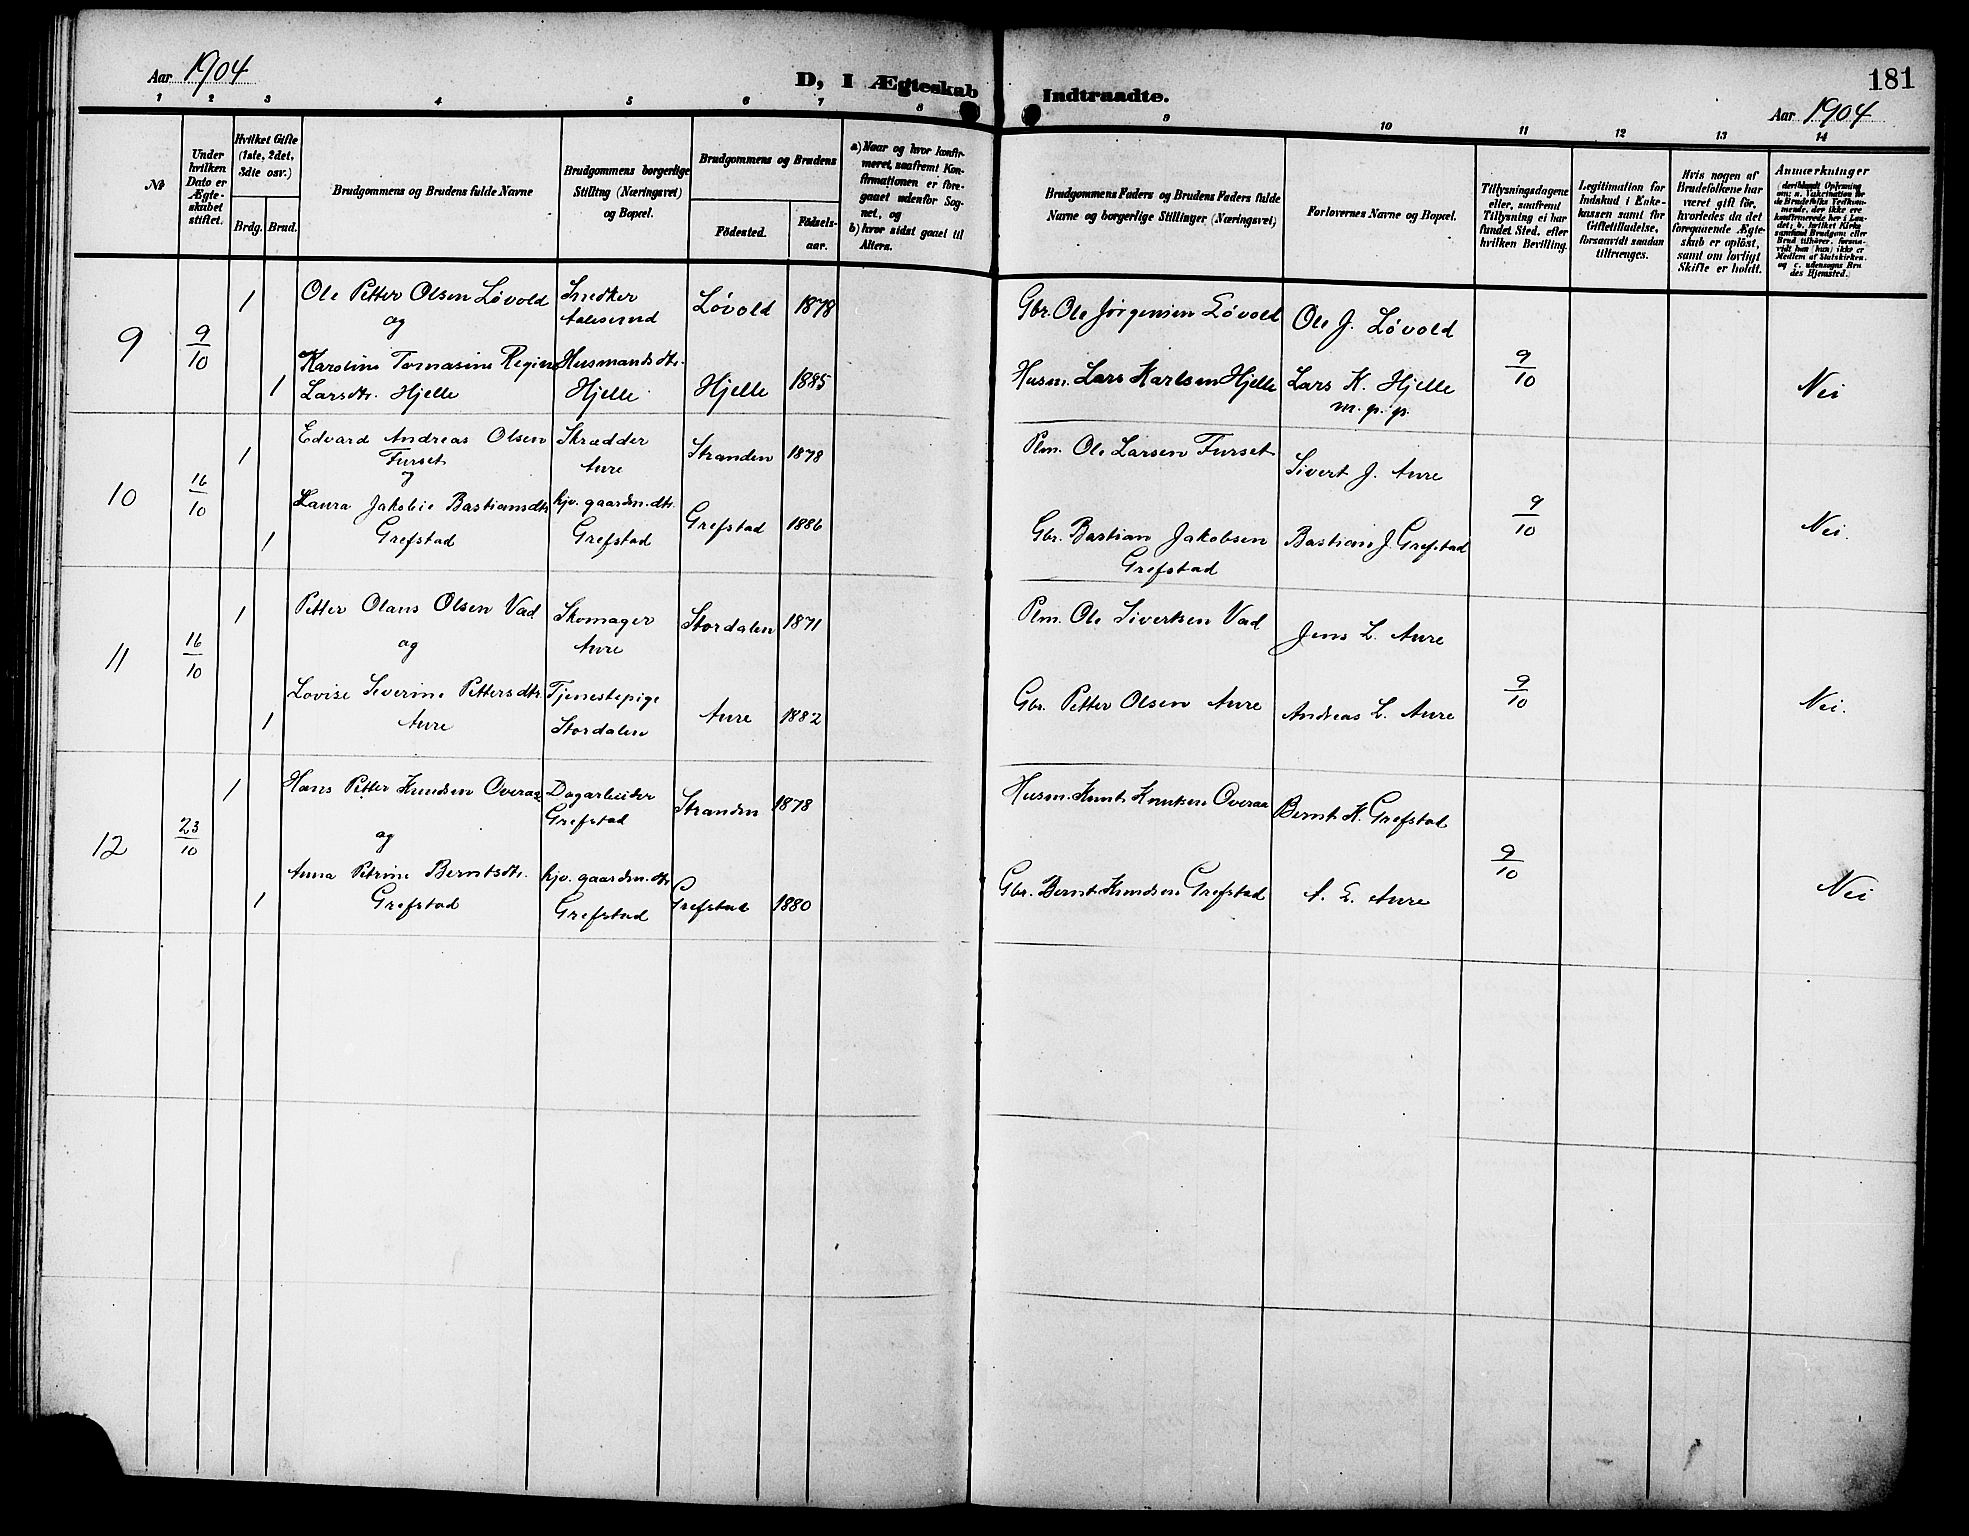 Aar 1904
D, I Ægteskab Indtraadte.
181
Aar 1904
1 2 3 4 5 6 7 8 9 10 11 12 13 14
№
Under hvilken Dato er Ægte-skabet stiftet.
Hvilket Gifte (1ste, 2det, 3die osv.)
Brdg. Brud.
Brudgommens og Brudens fulde Navne
Brudgommens borgerlige Stilling (Næringsvei) og Bopæl.
Brudgommens og Brudens
Födested.
Födsels-aar.
a) Naar og hvor konfir-meret, saafremt Kon-firmationen er fore-gaaet udenfor Sog-net, og
b) hvor sidst gaaet til Alters.
Brudgommens Faders og Brudens Faders fulde Navne og borgerlige Stillinger (Næringsvei)
Forlovernes Navne og Bopæl.
Tillysningsdagene eller, saafremt Tillysning ei har fundet Sted, efter hvilken Bevilling.
Legitimation for Indskud i Enke-kassen samt for Giftetilladelse, forsaavidt saadan tiltrænges.
Hvis nogen af Brudefolkene har været gift för, hvorledes da det foregaaende Ægte-skab er oplöst, samt om lovligt Skifte er holdt.
Anmerkninger
9
9/10
1
Ole Petter Olsen Løvold
Snedker
Aalesund
Løvold
1878
Gbr. Ole Jørgensen Løvold
Ole J. Løvold
og
1
Karoline Tomasine Regine
Larsdtr. Hjelle
Husmandsdtr.
Hjelle
Hjelle
1885
Husm. Lars Karlsen Hjelle
Lars K. Hjelle
m. p. p.
9/10
Nei
10
16/10
1
Edvard Andreas Olsen
Furset
Skrædder
Aure
Stranden
1878
Plm. Ole Larsen Furset
Sivert J. Aure
og
1
Laura Jakobie Bastiansdtr
Grefstad
hjv. gaardm.dtr.
Grefstad
Grefstad
1886
Gbr. Bastian Jakobsen
Grefstad
Bastian J. Grefstad
9/10
Nei.
11
16/10
1
Petter Olaus Olsen Vad
Skomager
Aure
Stordalen
1871
Plm. Ole Sivertsen Vad
Jens L. Aure
og
1
Lovise Severine Pettersdtr.
Aure
Tjenestepige
Stordalen
Aure
1882
Gbr. Petter Olsen Aure
Andreas L. Aure
9/10
Nei.
12
23/10
1
Hans Petter Knudsen Overaa
Dagarbeider
Grefstad
Stranden
1878
Husm. Knut Knutsen Overaa
Bernt K. Grefstad
og
1
Anna Petrine Berntsdtr.
Grefstad
hjv. gaardm.dtr
Grefstad
Grefstad
1880
Gbr. Bernt Knudsen Grefstad
A. L. Aure
9/10
Nei